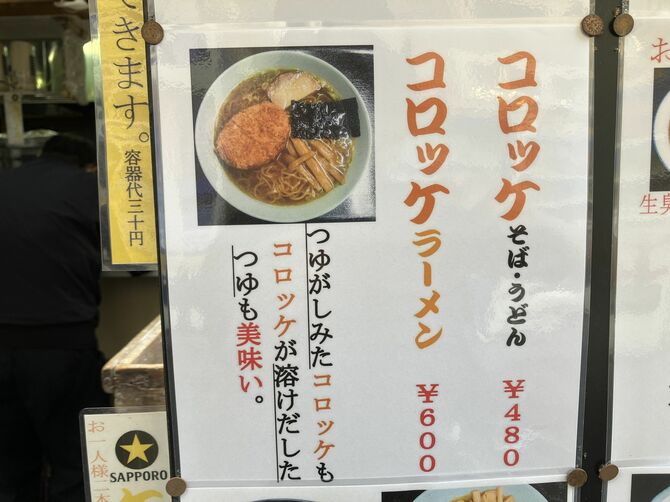 コロッケそば・うどん ¥480
コロッケラーメン ¥600
つゆがしみたコロッケも
コロッケが溶けだした
つゆも美味い。
きます。
容器代三十円
お一人様二本
SAPPORO
お
生